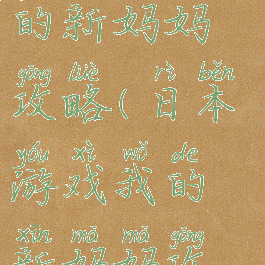 的新妈妈
gōng lüè rì běn
攻略(日本
yóu xì wǒ de
游戏我的
xīn mā mā gōng
新妈妈攻